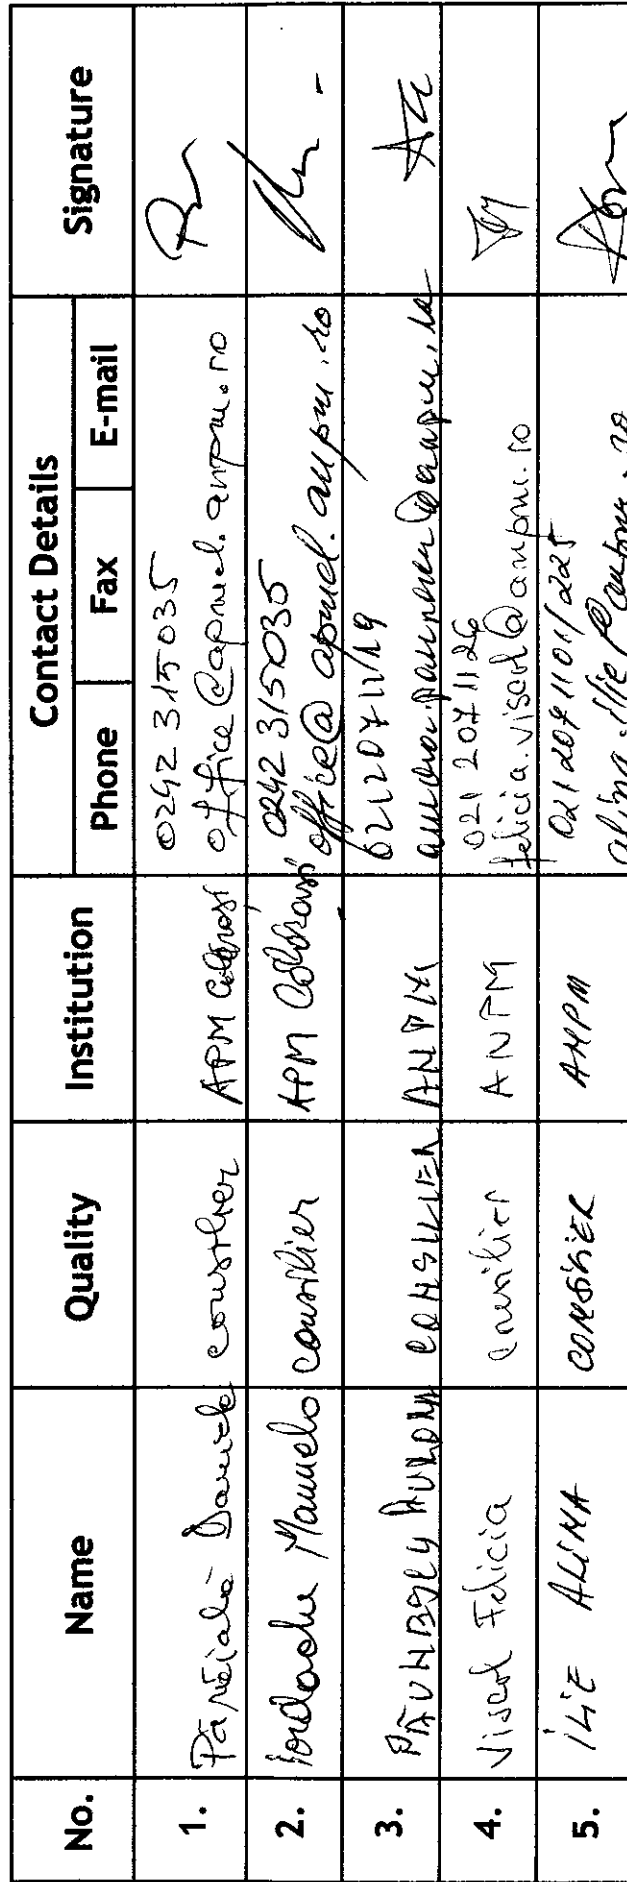 No. Name Quality Institution Contact Details Signature
Phone Fax E-mail
1. Daniela consilier APM Călărași 0242 315035
office@apmcl.anpm.ro
2. Iordache Manuela consilier APM Călărași 0242 315035
office@apmcl.anpm.ro
3. CONSILIER ANPM 0212071119
4. Viscol Felicia consilier ANPM 021 2071126
felicia.viscol@anpm.ro
5. ILIE ALINA CONSILIER ANPM 0212071101/225
alina.ilie@anpm.ro